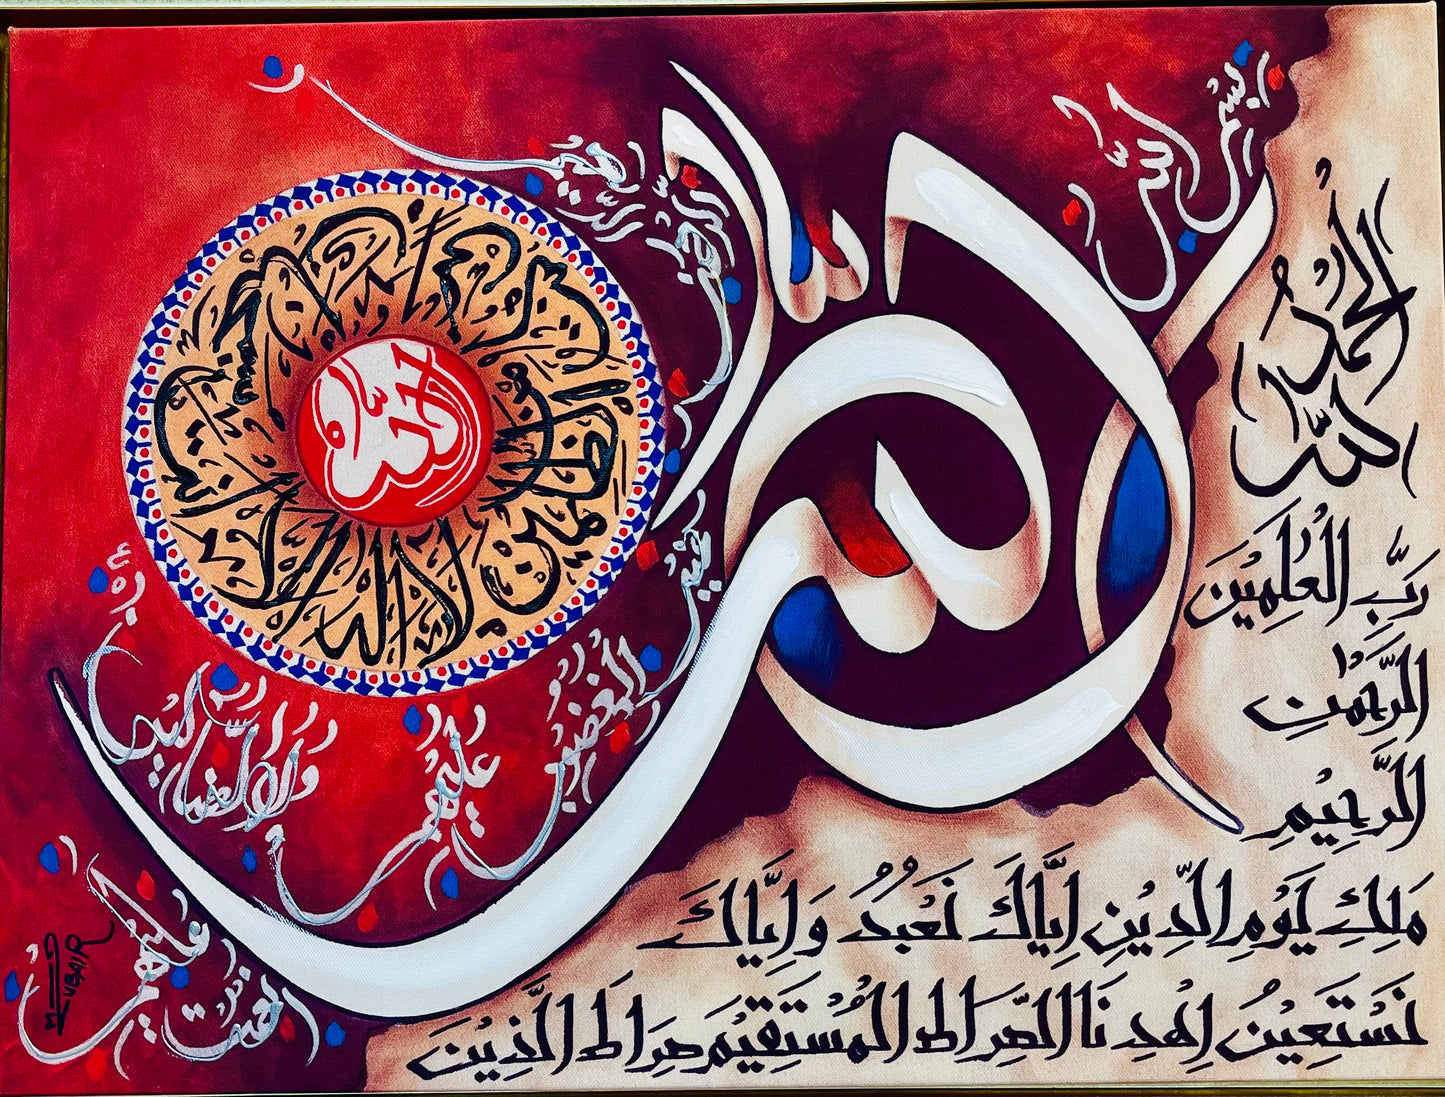 بِسْمِ اللّٰهِ
الرَّحْمٰنِ الرَّحِيْمِ
اَلْحَمْدُ لِلّٰهِ
رَبِّ الْعٰلَمِيْنَ
الرَّحْمٰنِ
الرَّحِيْمِ
مٰلِكِ يَوْمِ الدِّيْنِ اِيَّاكَ نَعْبُدُ وَاِيَّاكَ
نَسْتَعِيْنُ اِهْدِنَا الصِّرَاطَ الْمُسْتَقِيْمَ صِرَاطَ الَّذِيْنَ
اَنْعَمْتَ عَلَيْهِمْ
غَيْرِ
الْمَغْضُوْبِ
عَلَيْهِمْ
وَلَا الضَّآلِّيْنَ
الله
الله
لا اله الا الله
ZUBAIR